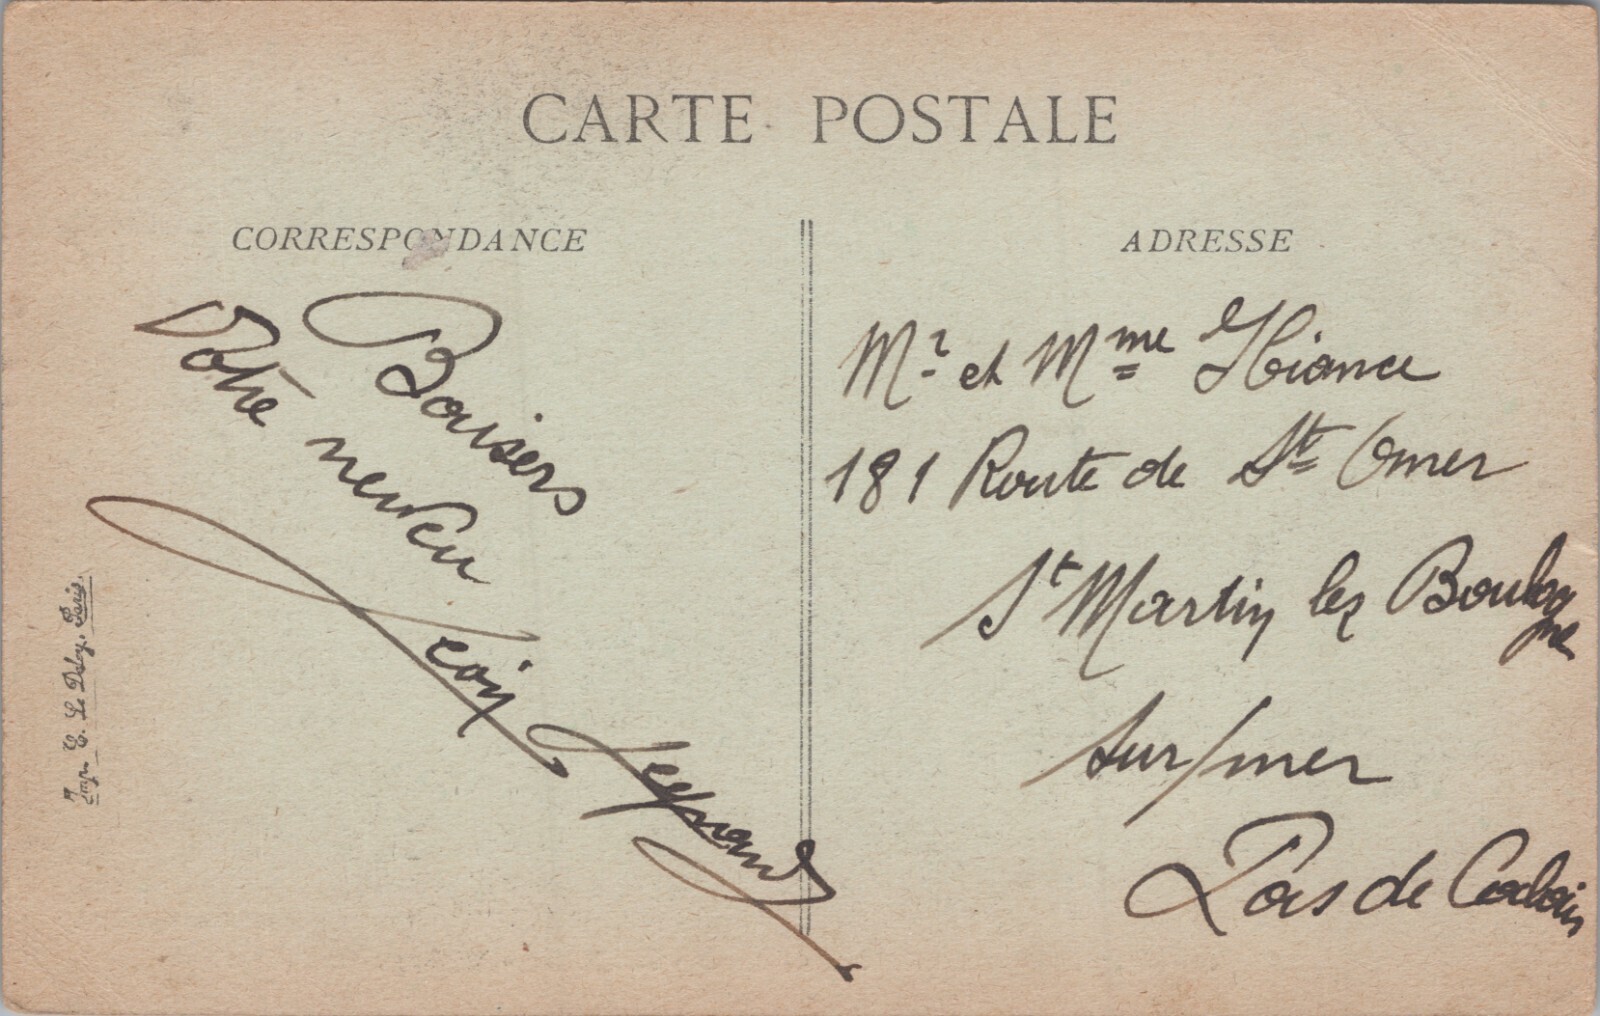 CARTE POSTALE
CORRESPONDANCE
ADRESSE
Baisers
Votre neveu
Léon
Mr et Mme Hiance
181 Route de St Omer
St Martin les Boulogne
sur/mer
Pas de Calais
Imp. E. Le Deley, Paris.